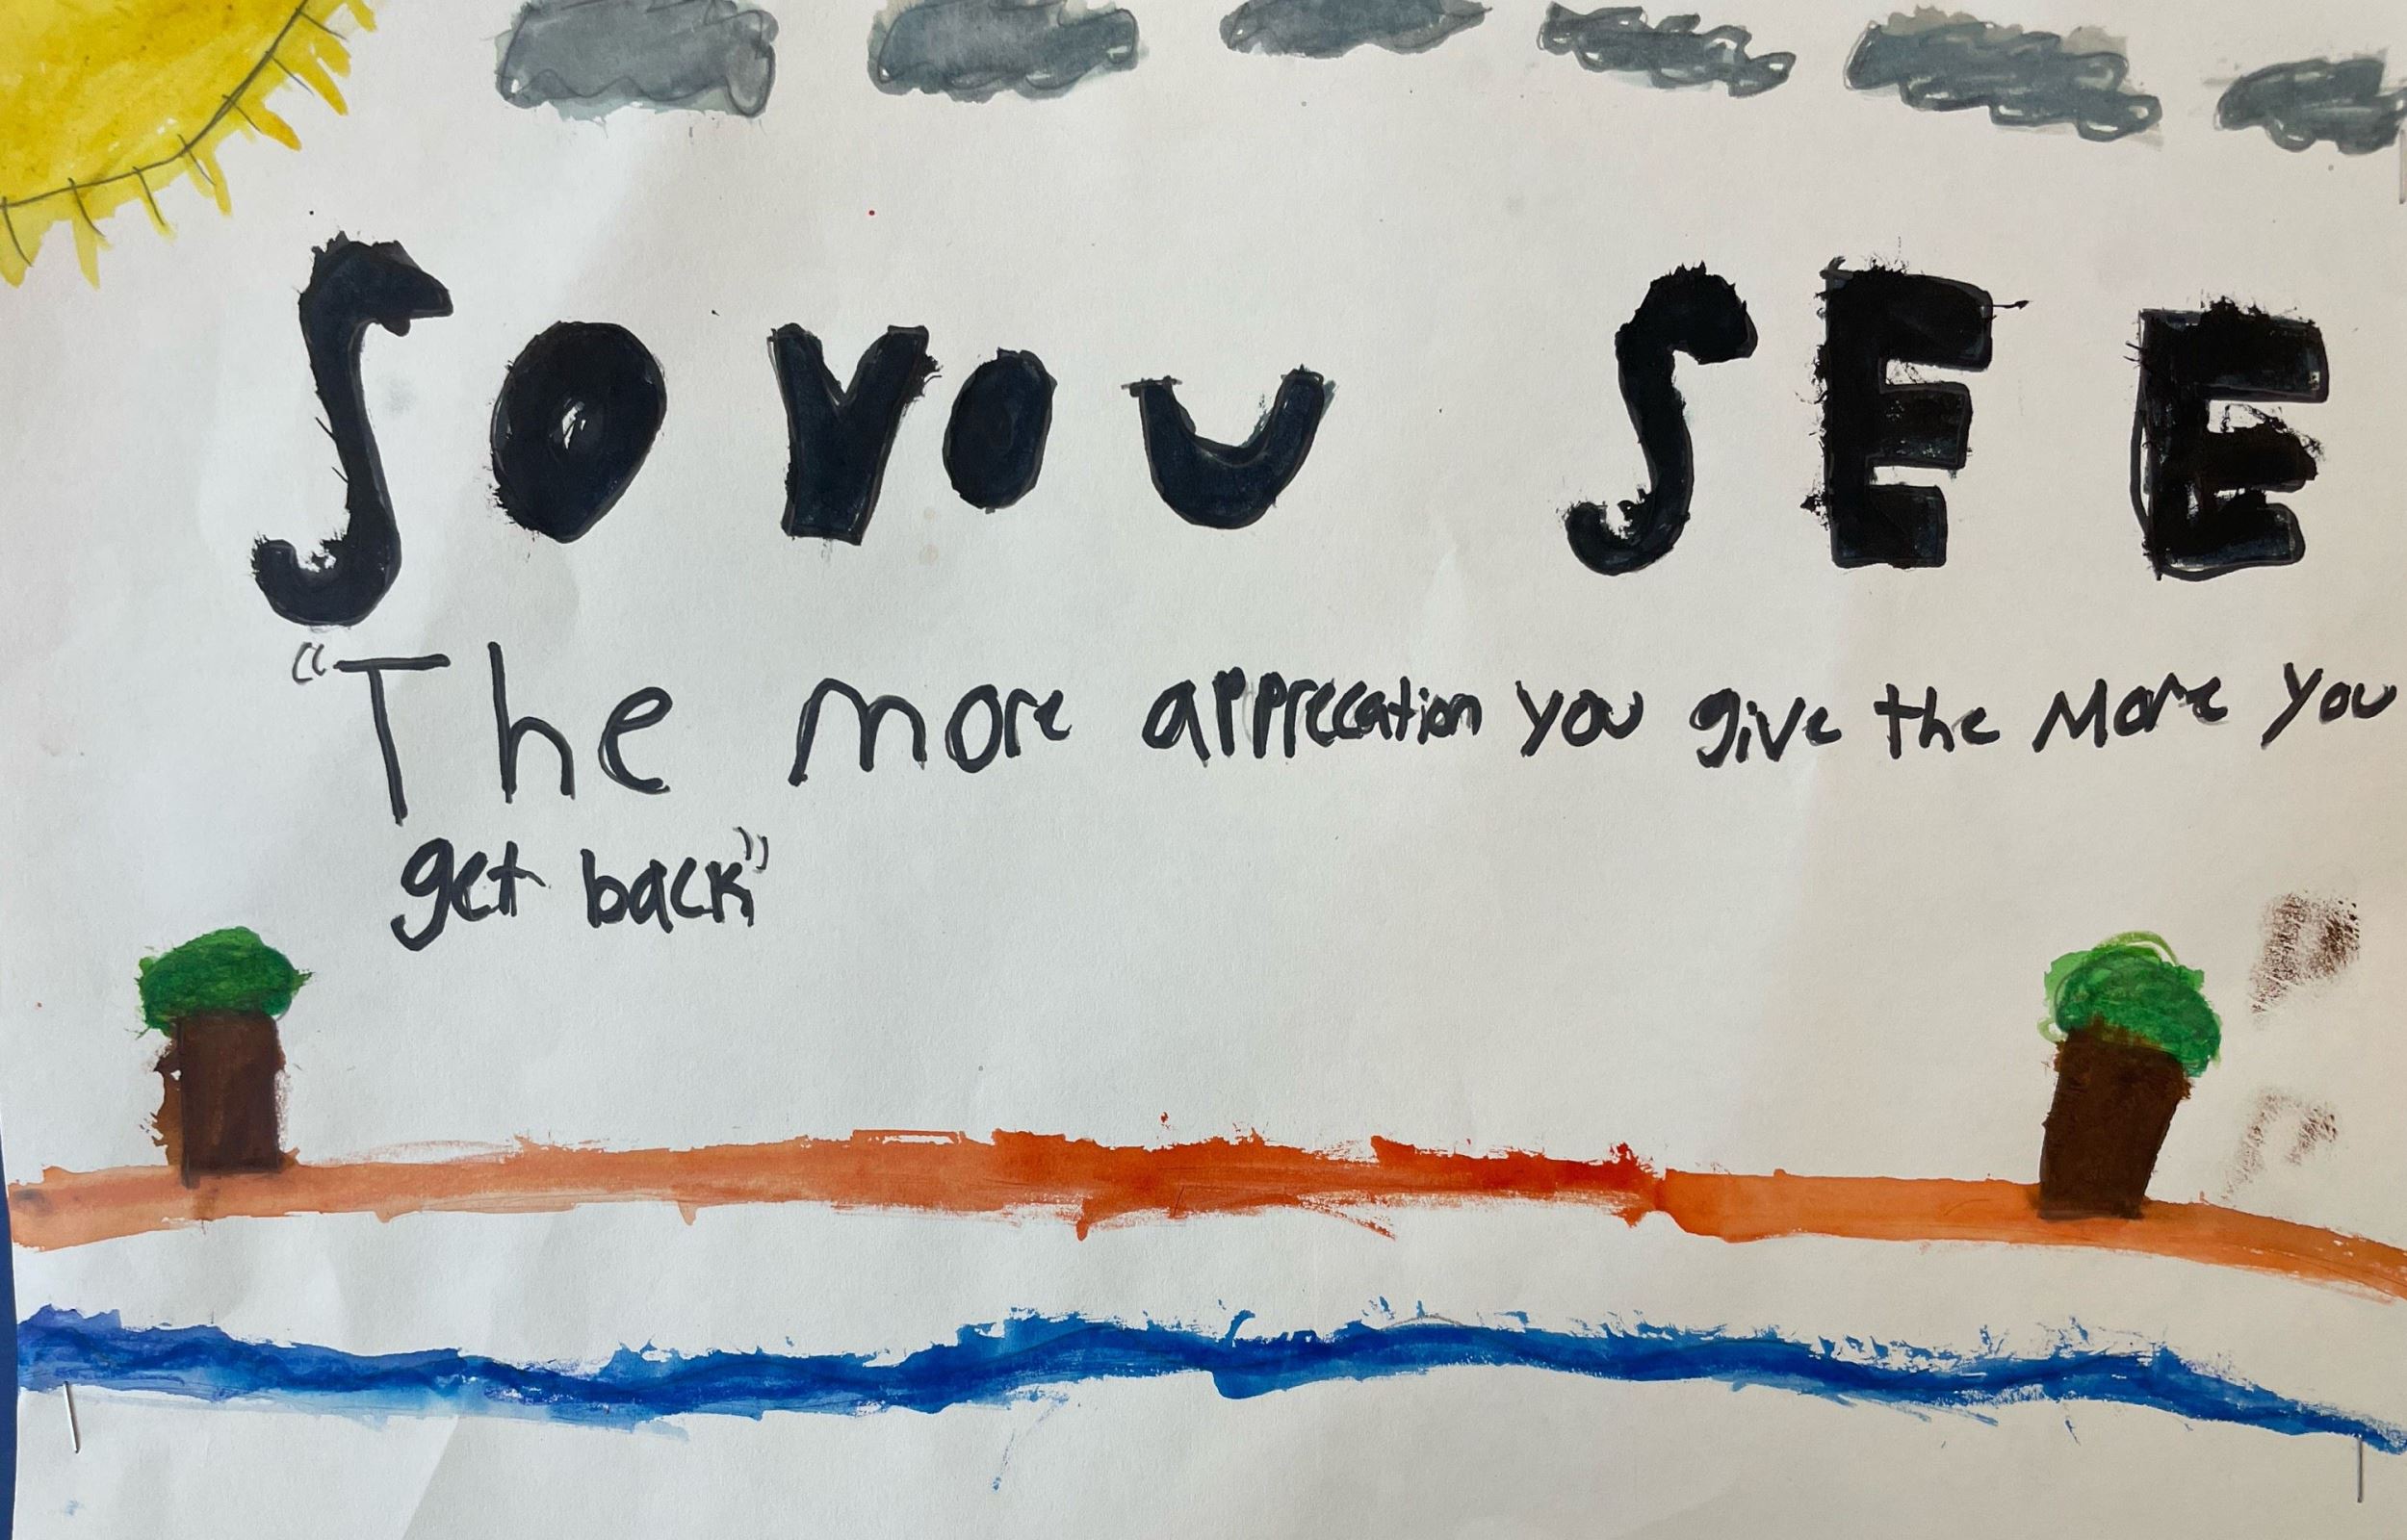 SO YOU SEE
"The more apprecation you give the More you
get back"